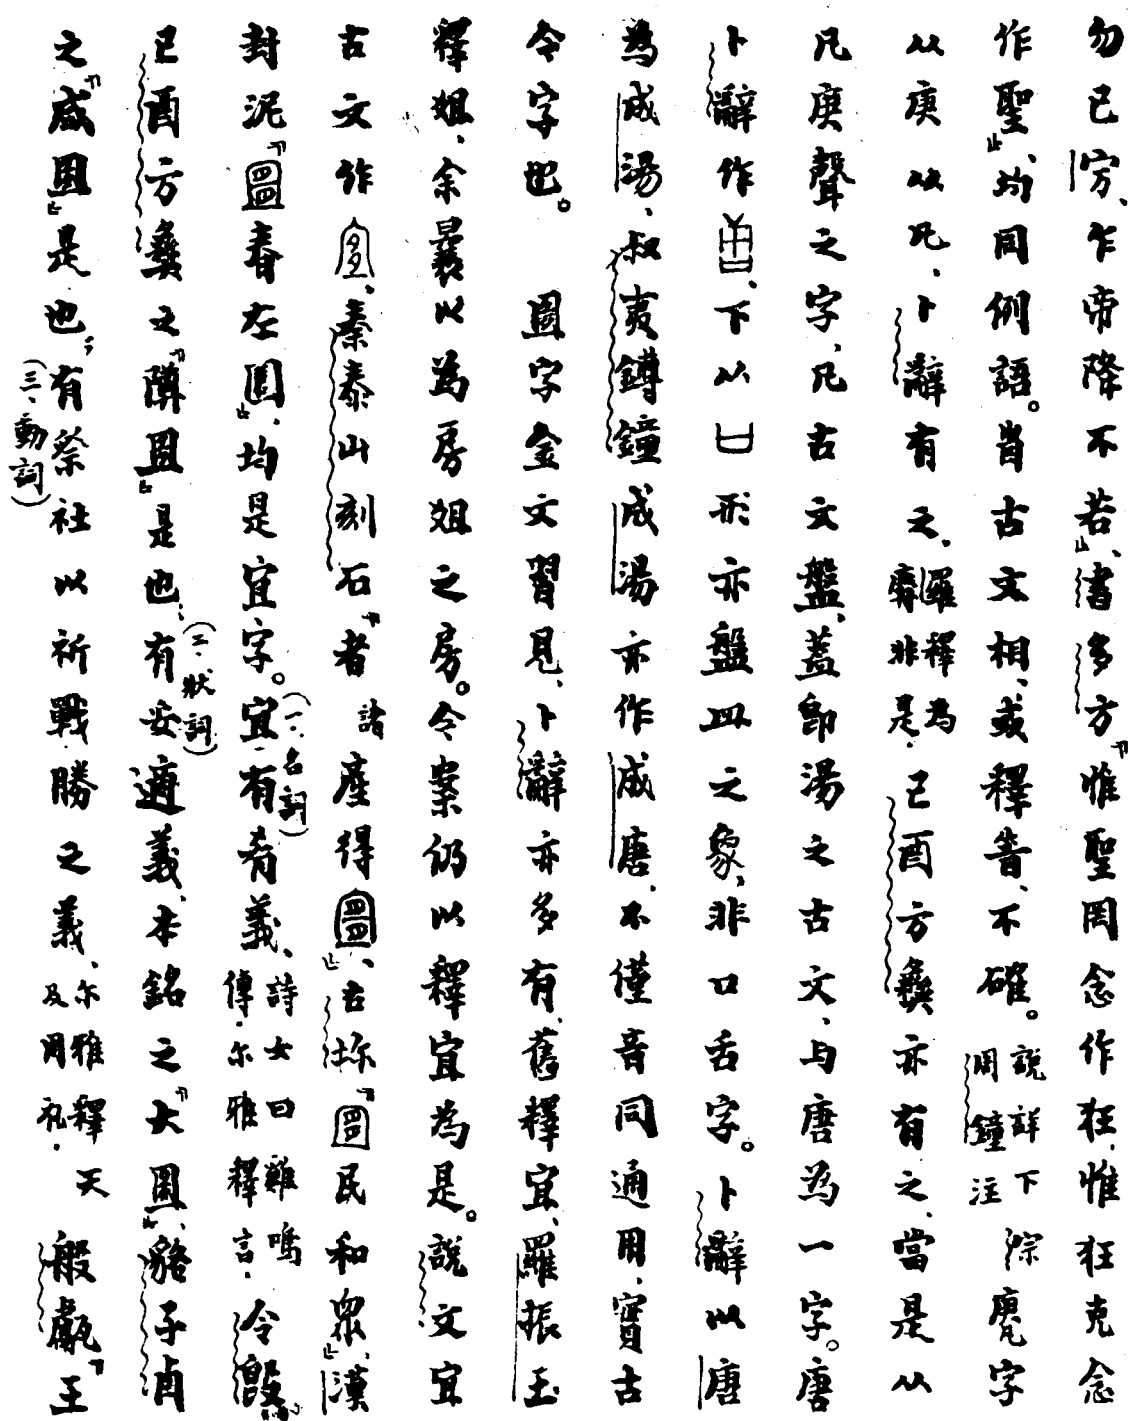 勿已𡧊、乍帝降不若」、書多方「惟聖罔念作狂、惟狂克念
作聖」、均同例語。首古文相、或釋首、不確。說詳下周鐘注 淙麑字
从庚从凡、卜辭有之、羅釋為麛非是。己酉方彝亦有之、當是从
凡庚聲之字、凡古文盤、蓋即湯之古文、与唐為一字。唐
卜辭作、下从凵形亦盤皿之象、非口舌字。卜辭以唐
為成湯、叔夷鎛鐘成湯亦作成唐、不僅音同通用、實古
今字也。 圖字金文習見、卜辭亦多有、舊釋宜、羅振玉
釋俎、余曩以為房俎之房。今案仍以釋宜為是。說文宜
古文作、秦泰山刻石「者諸產得宜」、古鉨「宜民和眾」、漢
封泥「宜春左園」、均是宜字。宜有肴義、(一、名詞)詩女曰雞鳴傳・尔雅釋言・令𣪘
己酉方彝之「障宜」是也；有安適義、(二、狀詞)本銘之「大宜」、貉子卣
之「咸宜」是也；有祭社以祈戰勝之義、(三、動詞)尔雅釋天及周礼・般甗「王